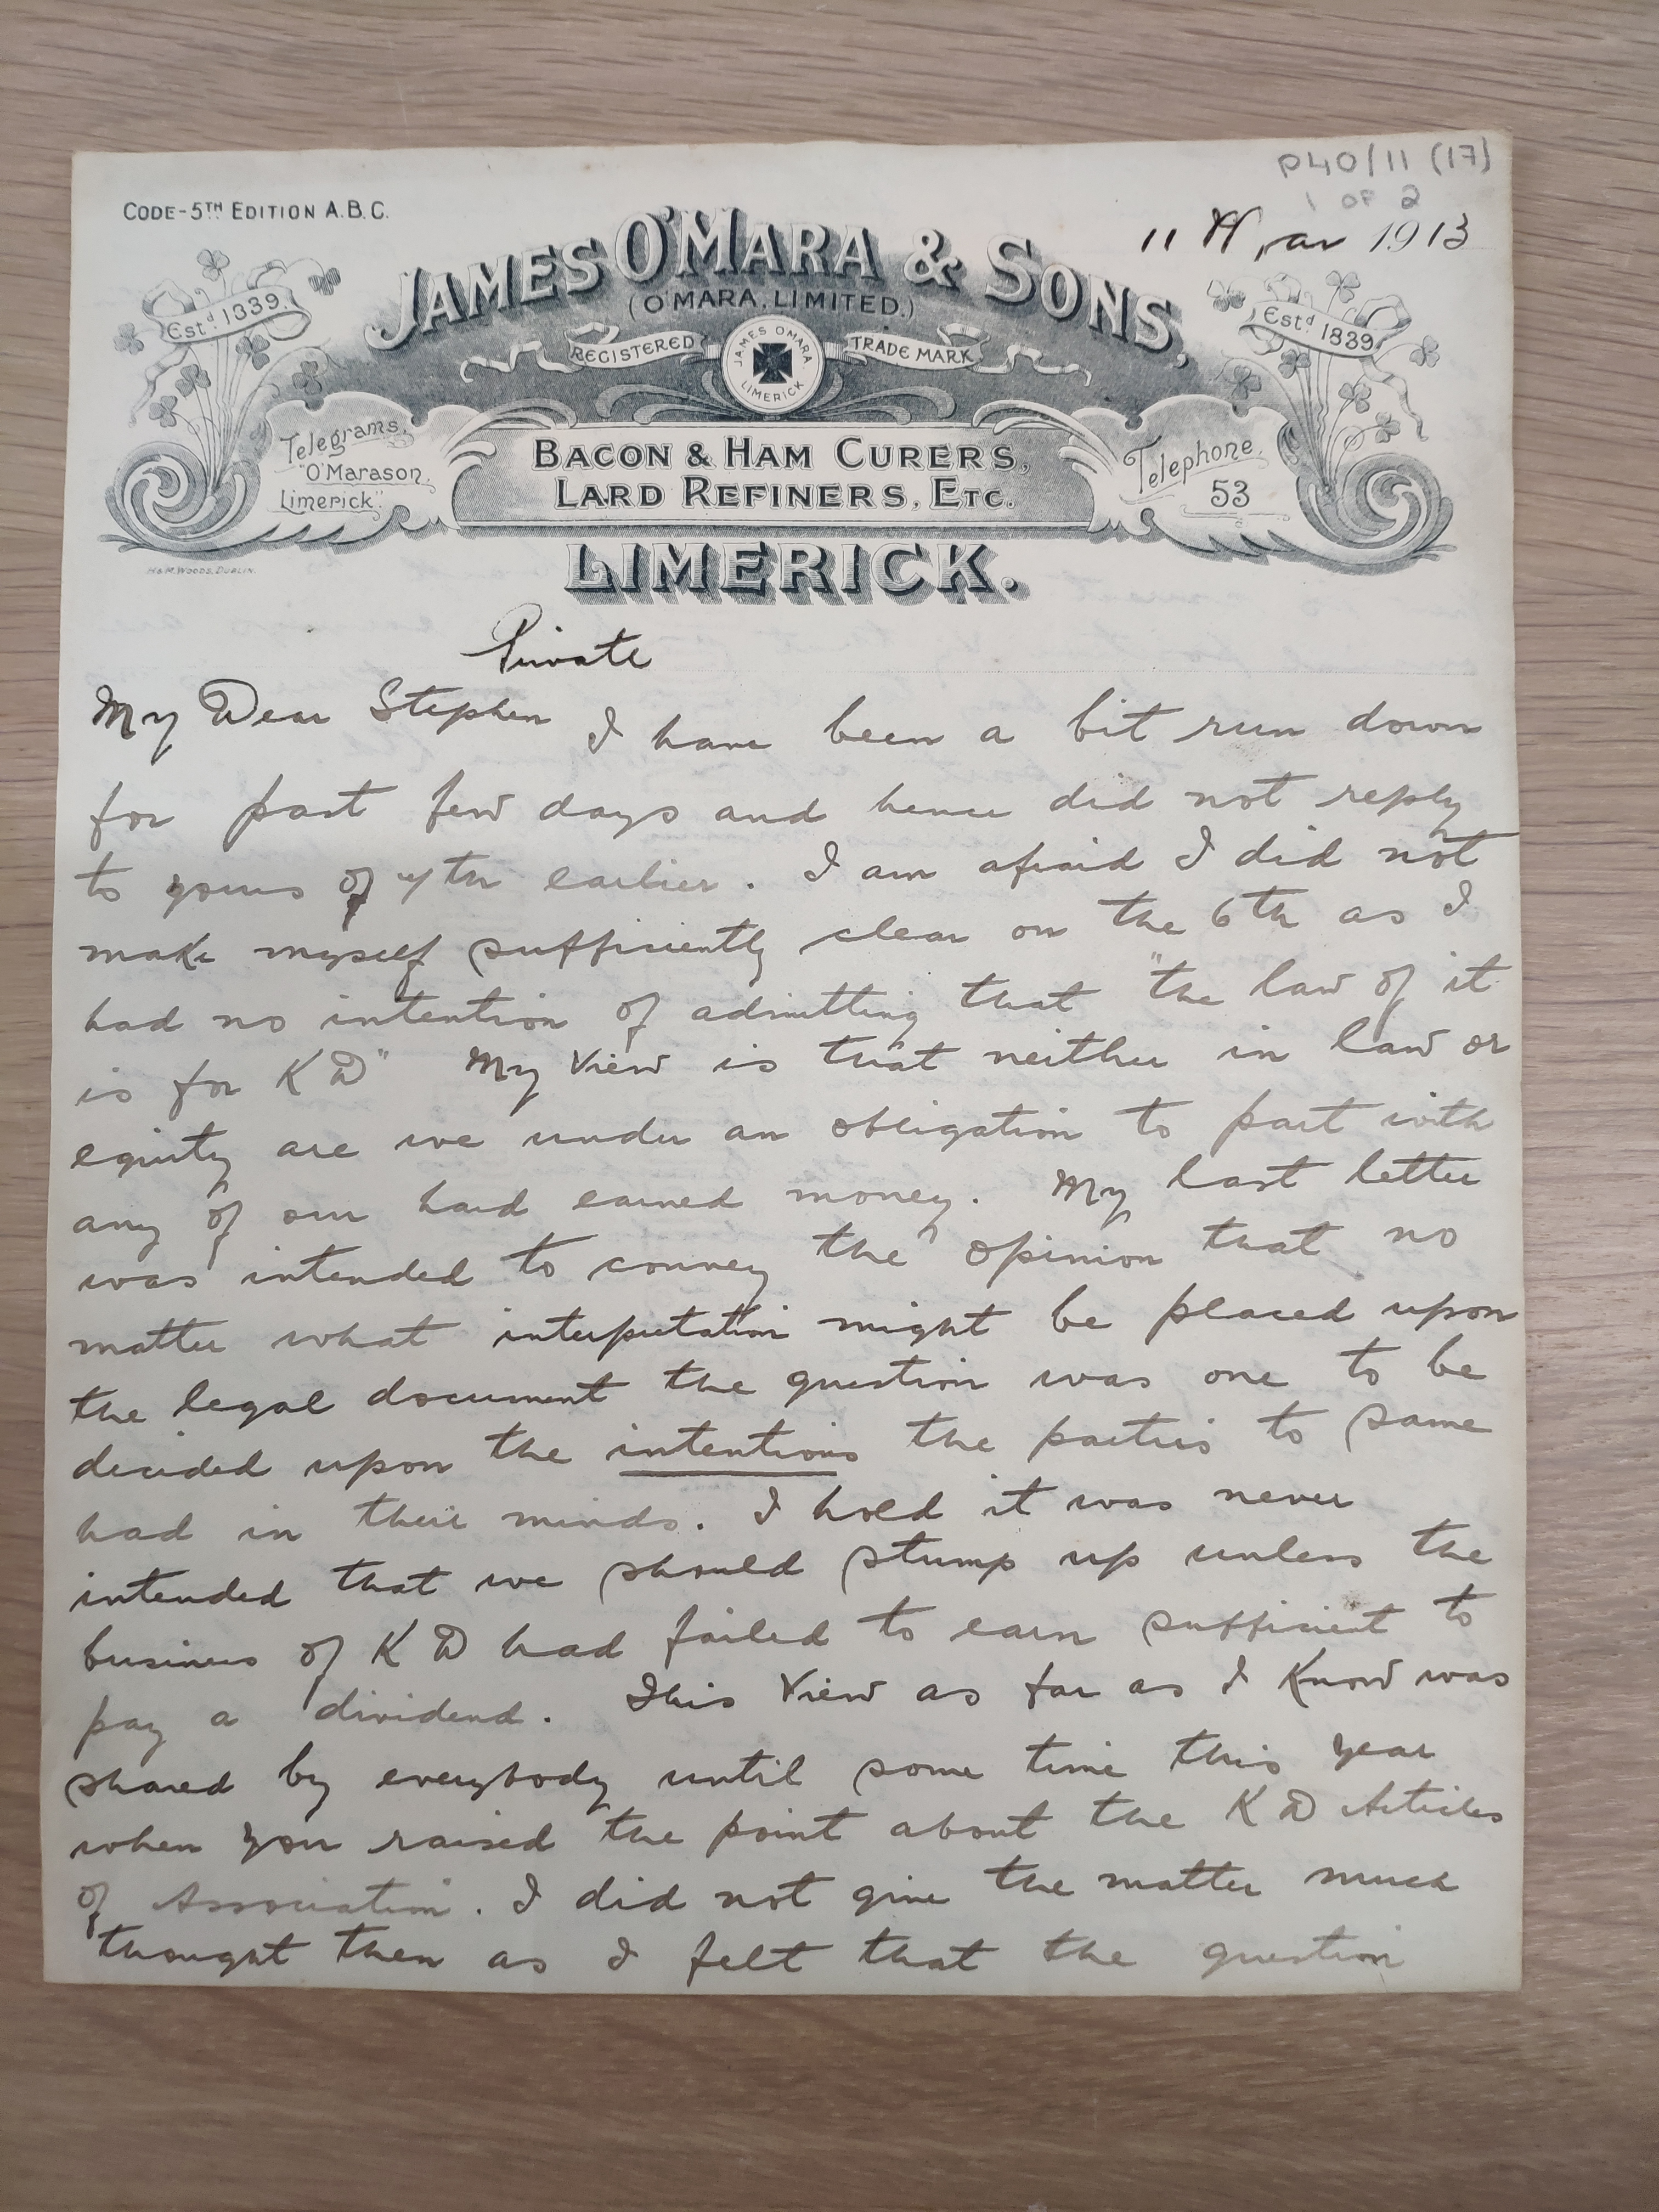 P40/11 (17)
1 OF 2
CODE-5TH EDITION A.B.C.
11 Mar 1913
JAMES O'MARA & SONS,
(O'MARA, LIMITED.)
Estd 1839
Estd 1839
REGISTERED
TRADE MARK
JAMES OMARA
LIMERICK
Telegrams,
"O'Marason,
Limerick"
BACON & HAM CURERS,
LARD REFINERS, ETC.
Telephone,
53
LIMERICK.
H&M. WOODS, DUBLIN.
Private
My Dear Stephen I have been a bit run down
for past few days and hence did not reply
to yours of th earlier. I am afraid I did not
make myself sufficiently clear on the 6th as I
had no intention of admitting that "the law of it
is for K D" My View is that neither in law or
equity are we under an obligation to part with
any of our hard earned money. My last letter
was intended to convey the opinion that no
matter what interpretation might be placed upon
the legal document the question was one to be
decided upon the intentions the parties to same
had in their minds. I hold it was never
intended that we should stump up unless the
business of K D had failed to earn sufficient to
pay a dividend. This View as far as I Know was
shared by everybody until some time this year
when you raised the point about the K D Articles
of Association. I did not give the matter much
thought then as I felt that the question